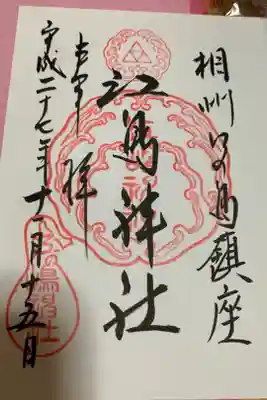 相州江の島鎮座
江島神社
拝
平成二十七年十一月十五日